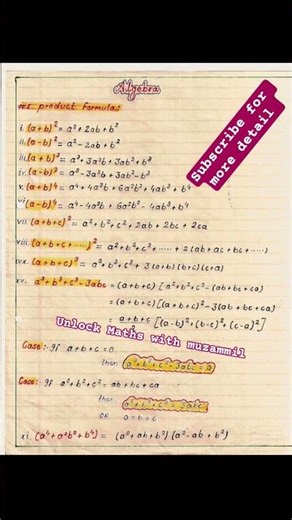 Algebra
product formulas
Subscribe for
more detail
i. (a+b)² = a² + 2ab + b²
ii. (a-b)² = a² - 2ab + b²
iii. (a+b)³ = a³ + 3a²b + 3ab² + b³
iv. (a-b)³ = a³ - 3a²b + 3ab² - b³
v. (a+b)⁴ = a⁴ + 4a³b + 6a²b² + 4ab³ + b⁴
vi. (a-b)⁴ = a⁴ - 4a³b + 6a²b² - 4ab³ + b⁴
vii. (a+b+c)² = a² + b² + c² + 2ab + 2bc + 2ca
viii. (a+b+c+.....)² = a² + b² + c² + ..... + 2(ab + ac + bc + .....)
ix. (a+b+c)³ = a³ + b³ + c³ + 3(a+b)(b+c)(c+a)
xv. a³+b³+c³-3abc = (a+b+c)[a²+b²+c²-(ab+bc+ca)]
= (a+b+c)[(a+b+c)²-3(ab+bc+ca)]
= a+b+c [(a-b)²+(b-c)²+(c-a)²]
Unlock Maths with muzammil
Case:- If a+b+c = 0
then
Case: If a²+b²+c² = ab+bc+ca
then
OR a=b=c
xi. (a⁴+a²b²+b⁴) = (a²+ab+b²)(a²-ab+b²)